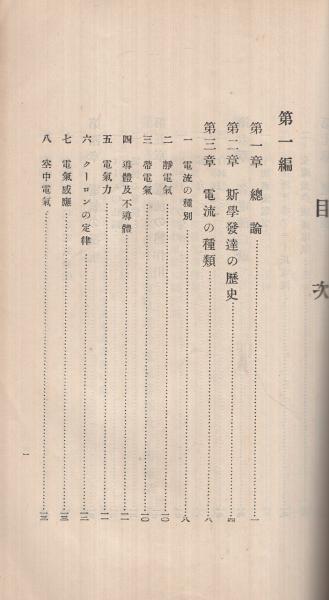 目次
第一編
第一章 總論……一
第二章 斯學發達の歷史……四
第三章 電流の種類……八
一 電流の種別……八
二 靜電氣……一〇
三 帶電氣……一〇
四 導體及不導體……一一
五 電氣力……一一
六 クーロンの定律……一二
七 電氣感應……一三
八 空中電氣……一三
一